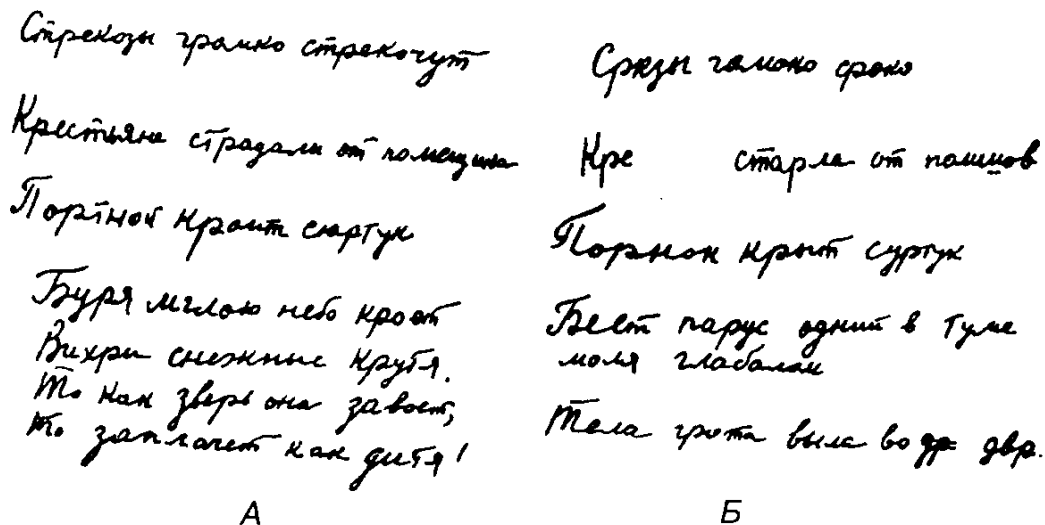 Стрекозы громко стрекочут
Крестьяне страдали от помещика
Портной кроит сюртук
Буря мглою небо кроет
Вихри снежные крутя.
То как зверь она завоет,
То заплачет как дитя!
А
Срезы гамоко сроко
Кре старла от пошиов
Порнок крыт суртук
Беет парус одний в туме
моля глабалаи
Тела грота выла во др двр.
Б